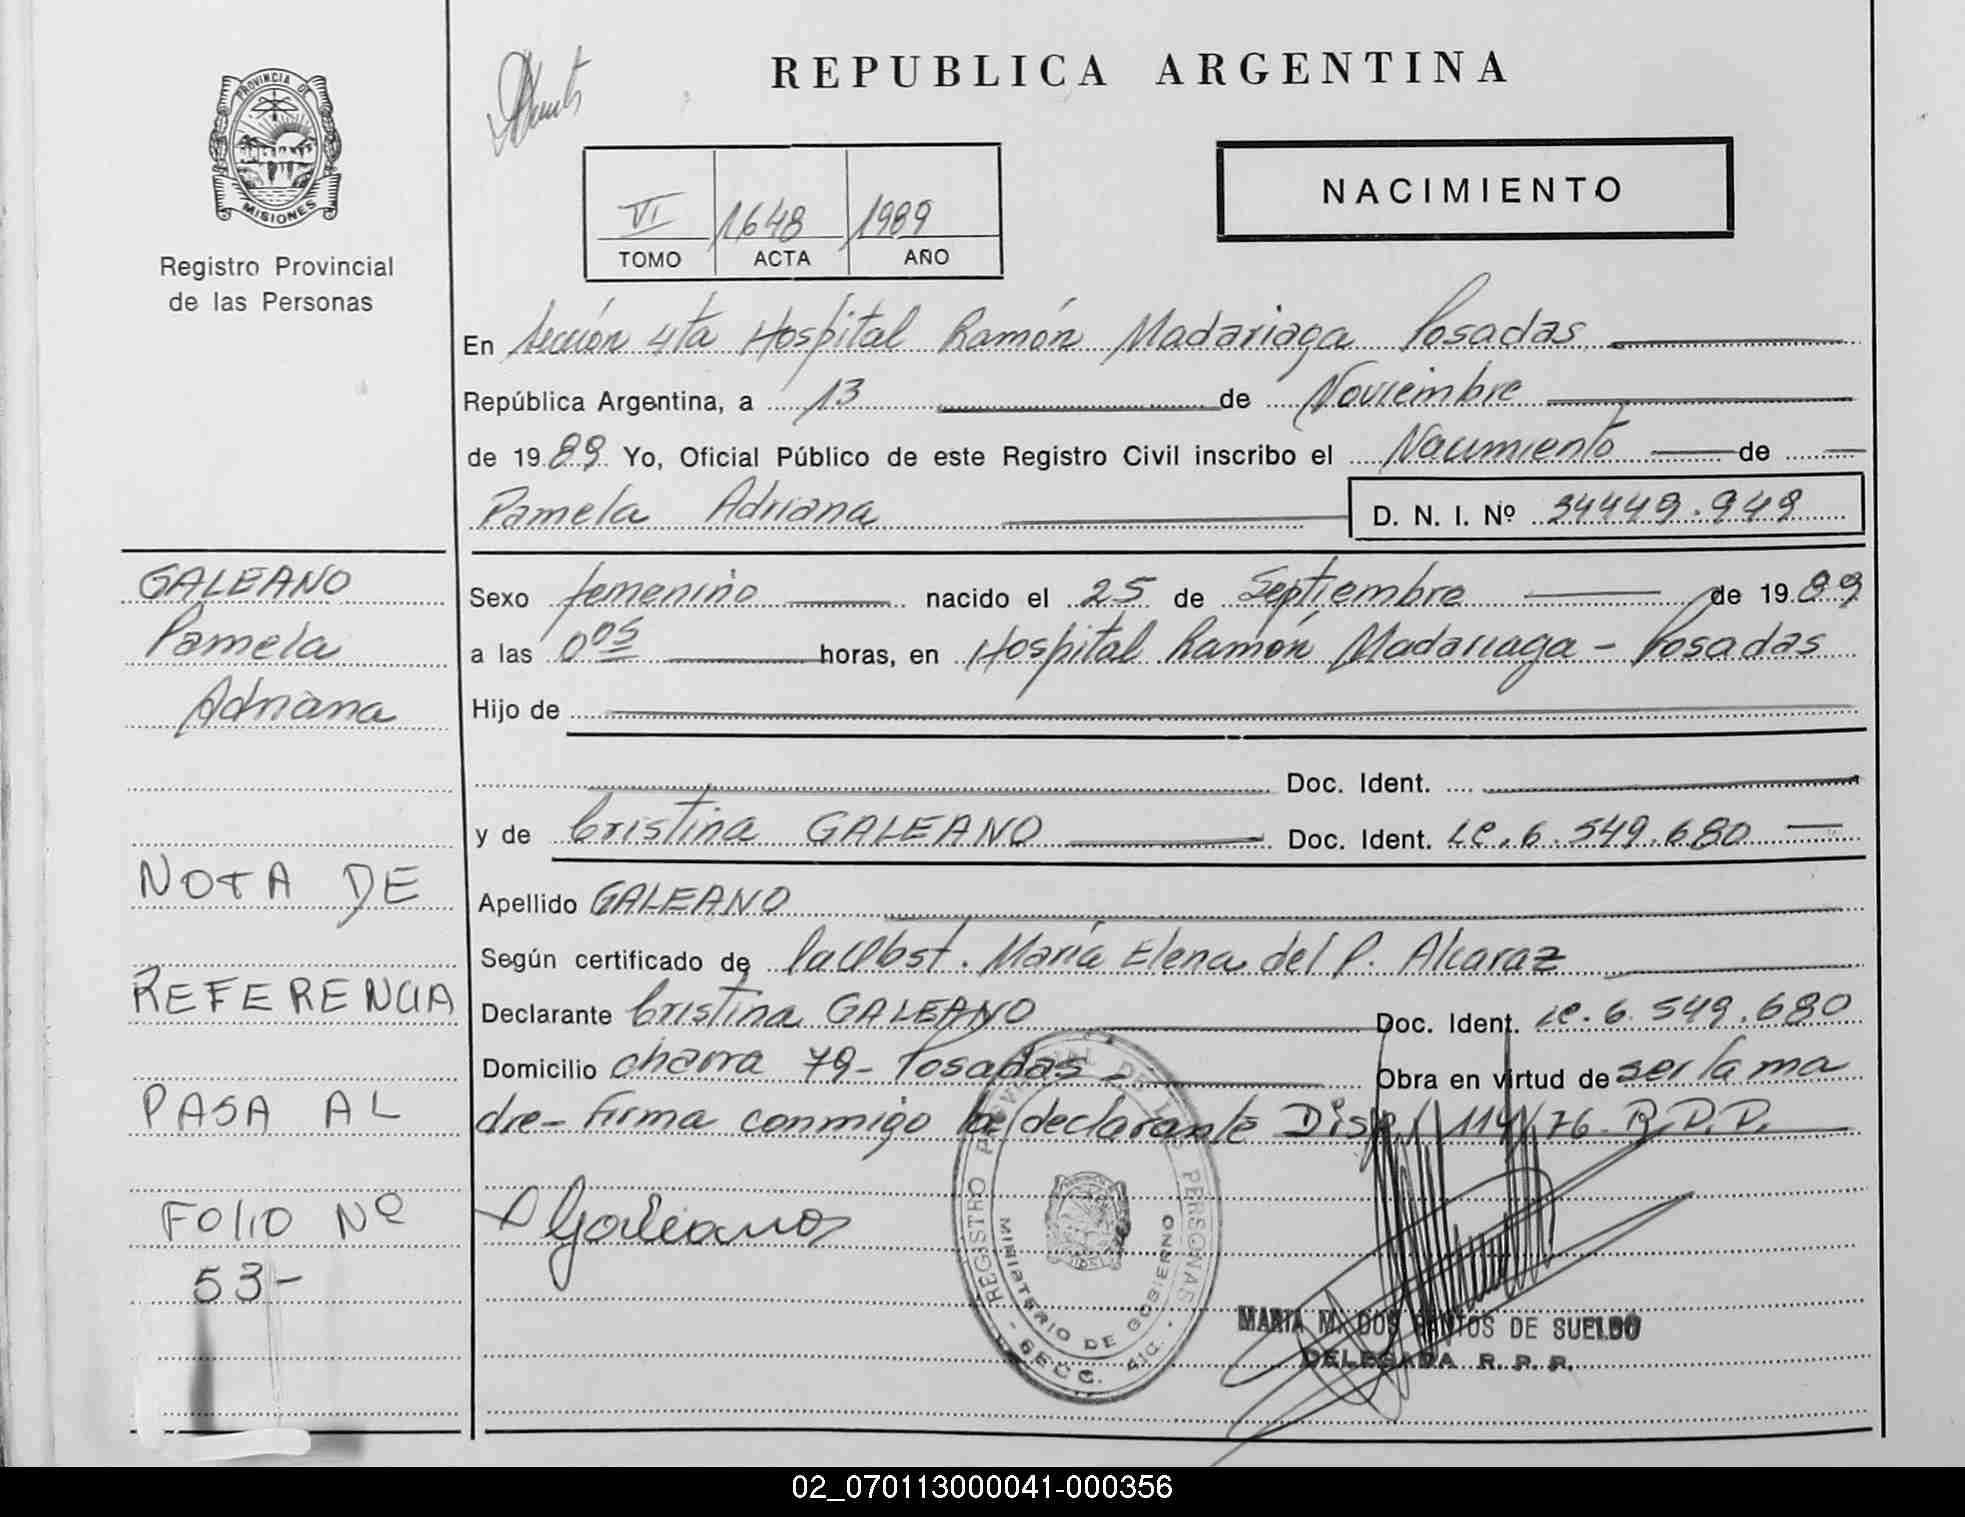 REPUBLICA ARGENTINA
PROVINCIA DE MISIONES
Registro Provincial
de las Personas
VI 1648 1989
TOMO ACTA AÑO
NACIMIENTO
En Sección 4ta Hospital Ramón Madariaga Posadas
República Argentina, a 13 de Noviembre
de 1989 Yo, Oficial Público de este Registro Civil inscribo el Nacimiento de
Pamela Adriana D. N. I. Nº 34449.949
GALEANO
Pamela
Adriana
NOTA DE
REFERENCIA
PASA AL
FOLIO Nº
53-
Sexo femenino nacido el 25 de Septiembre de 1989
a las 0 05 horas, en Hospital Ramón Madariaga - Posadas
Hijo de
Doc. Ident.
y de Cristina GALEANO Doc. Ident. LC. 6.549.680
Apellido GALEANO
Según certificado de María Elena del P. Alcaraz
Declarante Cristina GALEANO Doc. Ident. LC. 6.549.680
Domicilio chacra 79- Posadas - Obra en virtud de ser la ma
dre- Firma conmigo la declarante Disp. 114/76 R.D.P.
Galeano
REGISTRO PROVINCIAL DE LAS PERSONAS
MINISTERIO DE GOBIERNO
- SECC. 4ta. -
MARIA M. DOS SANTOS DE SUELDO
DELEGADA R. P. P.
02_070113000041-000356